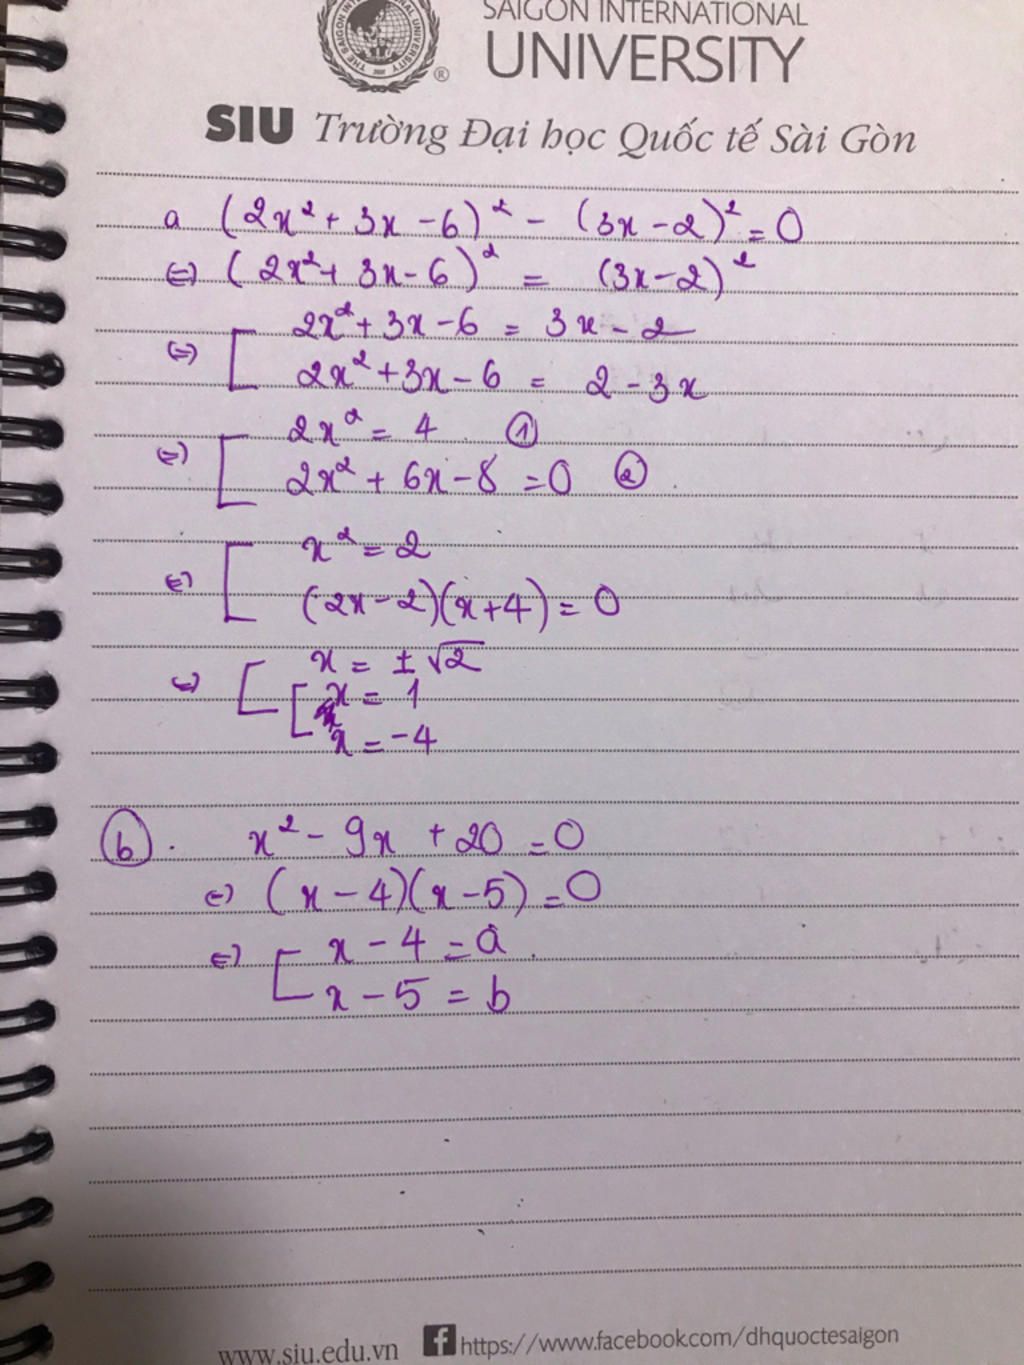 THE SAIGON INTERNATIONAL UNIVERSITY
®
SAIGON INTERNATIONAL
UNIVERSITY
SIU Trường Đại học Quốc tế Sài Gòn
a (2x² + 3x - 6)² - (3x - 2)² = 0
(=) (2x² + 3x - 6)² = (3x - 2)²
(=) [ 2x² + 3x - 6 = 3x - 2
2x² + 3x - 6 = 2 - 3x
(=) [ 2x² = 4 ①
2x² + 6x - 8 = 0 ②
(=) [ x² = 2
(2x - 2)(x + 4) = 0
(=) [ x = ± √2
[ x = 1
x = -4
ⓑ. x² - 9x + 20 = 0
(=) (x - 4)(x - 5) = 0
(=) [ x - 4 = a
x - 5 = b
www.siu.edu.vn f https://www.facebook.com/dhquoctesaigon